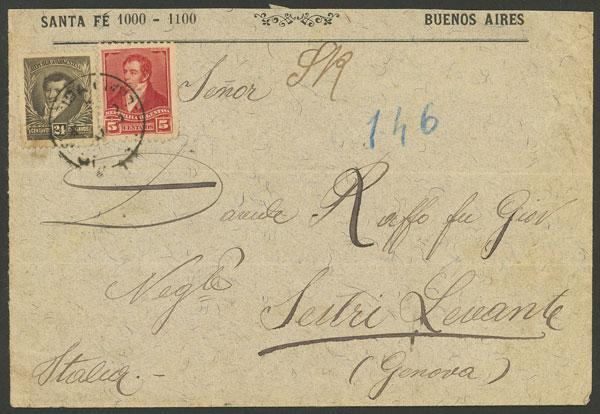 SANTA FÉ 1000 - 1100 BUENOS AIRES
REPUBLICA ARGENTINA
5 CENTAVOS 5
24
Señor
SR
146
Raffo fu Giov.
Negte
Sestri Levante
(Genova)
Italia.-